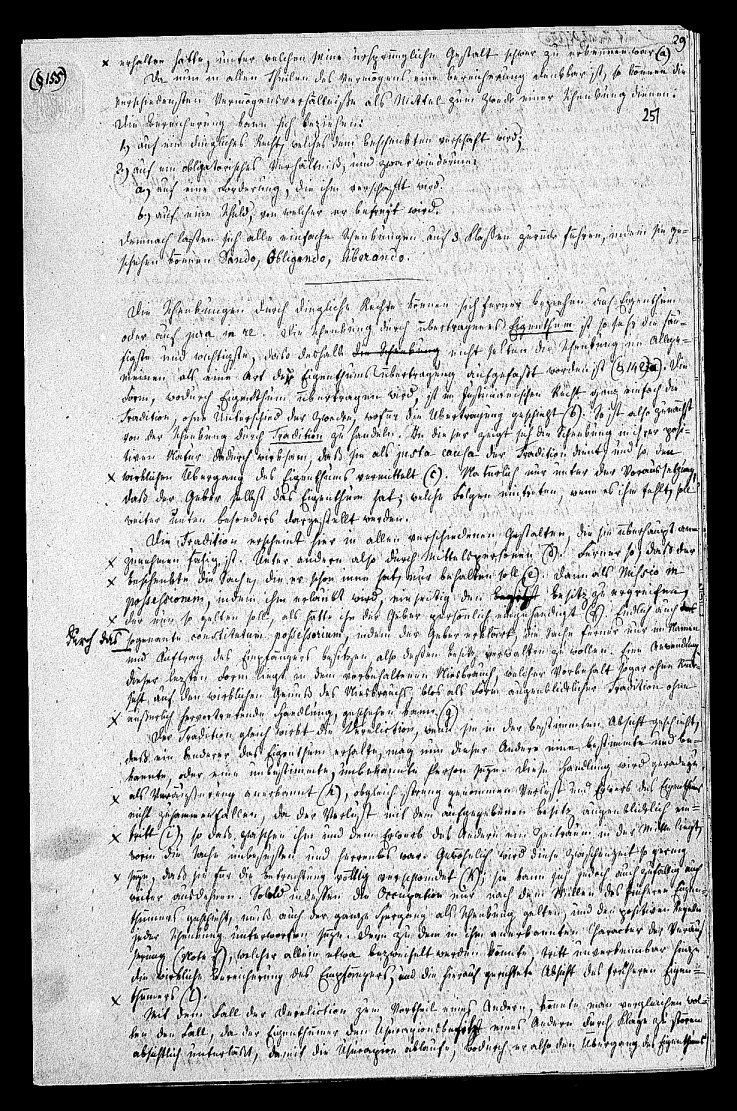 29
(§ 155)
251
x erhalten hätte, unter welchen seine ursprüngliche Gestalt schwer zu erkennen war (a)
Da nun in allen Theilen des Vermögens eine Bereicherung denkbar ist, so können die
verschiedensten Vermögensverhältnisse als Mittel zum Zweck einer Schenkung dienen.
Die Bereicherung kann sich beziehen:
1) auf ein dingliches Recht, welches dem Beschenkten verschafft wird;
2) auf ein obligatorisches Verhältniß, und zwar wiederum:
a) auf eine Forderung, die ihm verschafft wird
b) auf eine Schuld, von welcher er befreyt wird.
Demnach lassen sich alle einfache Schenkungen auf 3 Klassen zurück führen, indem sie ge-
schehen können Dando, Obligando, Liberando.
Die Schenkungen durch dingliche Rechte können sich ferner beziehen auf Eigenthum
oder auf jura in re. Die Schenkung durch übertragenes Eigenthum ist so sehr die häu-
figste und wichtigste, daß deshalb die Schenkung nicht selten die Schenkung im Allge-
meinen als eine Art der Eigenthumsübertragung aufgefaßt worden ist (§ 142 a). Die
Form, wodurch Eigenthum übertragen wird, ist im Justinianischen Recht ganz einfach die
Tradition, ohne Unterschied der Zwecke, wofür die Übertragung geschieht (b). Es ist also zunächst
von der Schenkung durch Tradition zu handeln. In dieser zeigt sich die Schenkung nach ihrer posi-
tiven Natur dadurch wirksam, daß sie als justa causa der Tradition dient, und so den
x wirklichen Übergang des Eigenthums vermittelt (c). Natürlich nur unter der Voraussetzung,
daß der Geber selbst das Eigenthum hat; welche Folgen eintreten, wenn es ihm fehlt, soll
weiter unten besonders dargestellt werden.
Die Tradition erscheint hier in allen verschiedenen Gestalten, die sie überhaupt an-
x zunehmen fähig ist. Unter andern also durch Mittelspersonen (d). Ferner so, daß der
x Beschenkte die Sache, die er schon inne hat, nur behalten soll (e). Dann als Missio in
possessionem, indem ihm erlaubt wird, einseitig den Besitz zu ergreifen,
x der nun so gelten soll, als hätte ihn der Geber persönlich eingehändigt (f). Endlich auch
durch das sogenannte constitutum possessorium, indem der Geber erklärt, die Sache ferner nur im Namen
und Auftrag des Empfängers besitzen, also dessen Besitz verwalten zu wollen. Eine Anwendung
dieser letzten Form liegt in dem vorbehaltenen Niesbrauch, welcher Vorbehalt sogar ohne Rück-
sicht auf den wirklichen Genuß des Niesbrauchs, blos als Form augenblicklicher Tradition ohne
x äußerlich hervortretende Handlung, geschehen kann (g)
Der Tradition gleich wirkt die Dereliction, wenn sie in der bestimmten Absicht geschieht,
daß ein Anderer das Eigenthum erhalte, mag nun dieser Andere eine bestimmte und be-
kannte, oder eine unbestimmte, unbekannte Person seyn. Diese Handlung wird geradezu
x als Veräußerung anerkannt (h), obgleich streng genommen Verlust und Erwerb des Eigenthums
nicht zusammenfallen, da der Verlust mit dem aufgegebenen Besitz augenblicklich ein-
x tritt (i), so daß zwischen ihm und dem Erwerb des Andern ein Zeitraum in der Mitte liegt,
worin die Sache unbesessen und herrenlos war. Gewöhnlich wird diese Zwischenzeit so gering
x seyn, daß sie für die Betrachtung völlig verschwindet (k); sie kann sich jedoch auch zufällig auch
weiter ausdehnen. Sobald indessen die Occupation nur nach dem Willen des früheren Eigen-
thümers geschieht, muß auch der ganze Hergang als Schenkung gelten, und den positiven Regeln
jeder Schenkung unterworfen seyn. Denn zu dem in ihm anerkannten Charakter der Veräuße-
rung (Note h), welcher allein etwa bezweifelt werden könnte, tritt unverkennbar hinzu
die wirkliche Bereicherung des Empfängers, und die hierauf gerichtete Absicht des früheren Eigen-
x thümers (l).
Mit dem Fall der Dereliction zum Vortheil eines Andern, könnte man vergleichen wol-
len den Fall, da der Eigenthümer den Usucapionsbesitz eines Andern durch Klage zu stören
absichtlich unterläßt, damit die Usucapion ablaufe, wodurch er also den Übergang des Eigenthums